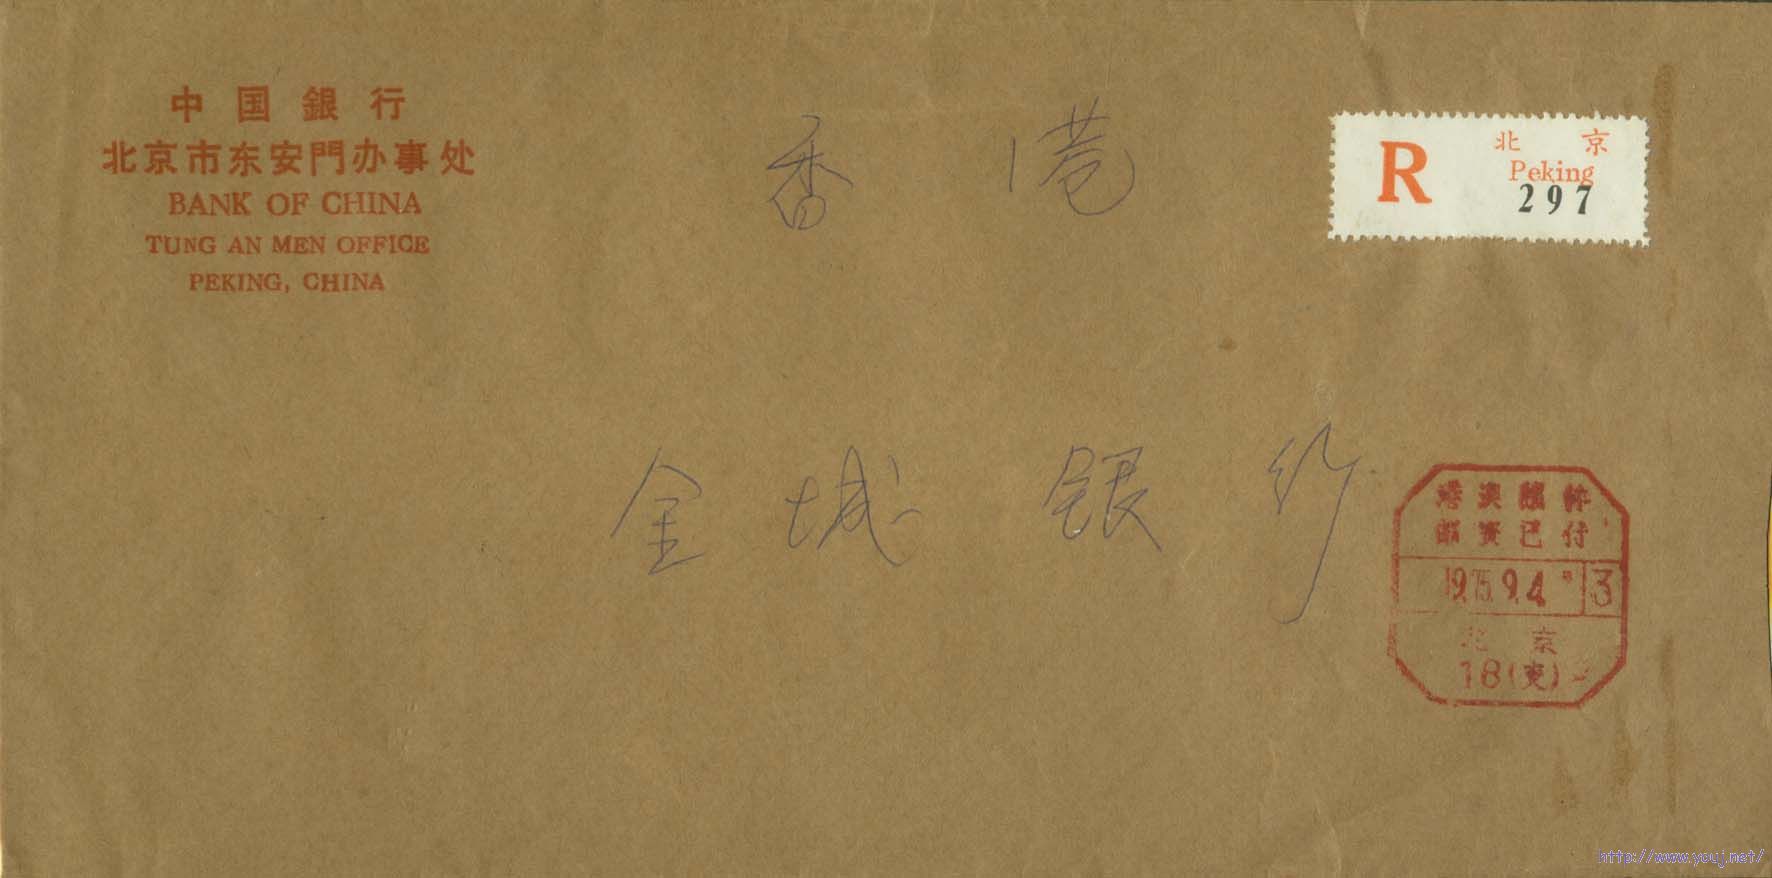 中国銀行
北京市东安門办事处
BANK OF CHINA
TUNG AN MEN OFFICE
PEKING, CHINA
香港
R 北京
Peking
297
金城銀行
港澳 件
邮资已付
1975.9.4 3
北京
18(支)
http://www.youj.net/